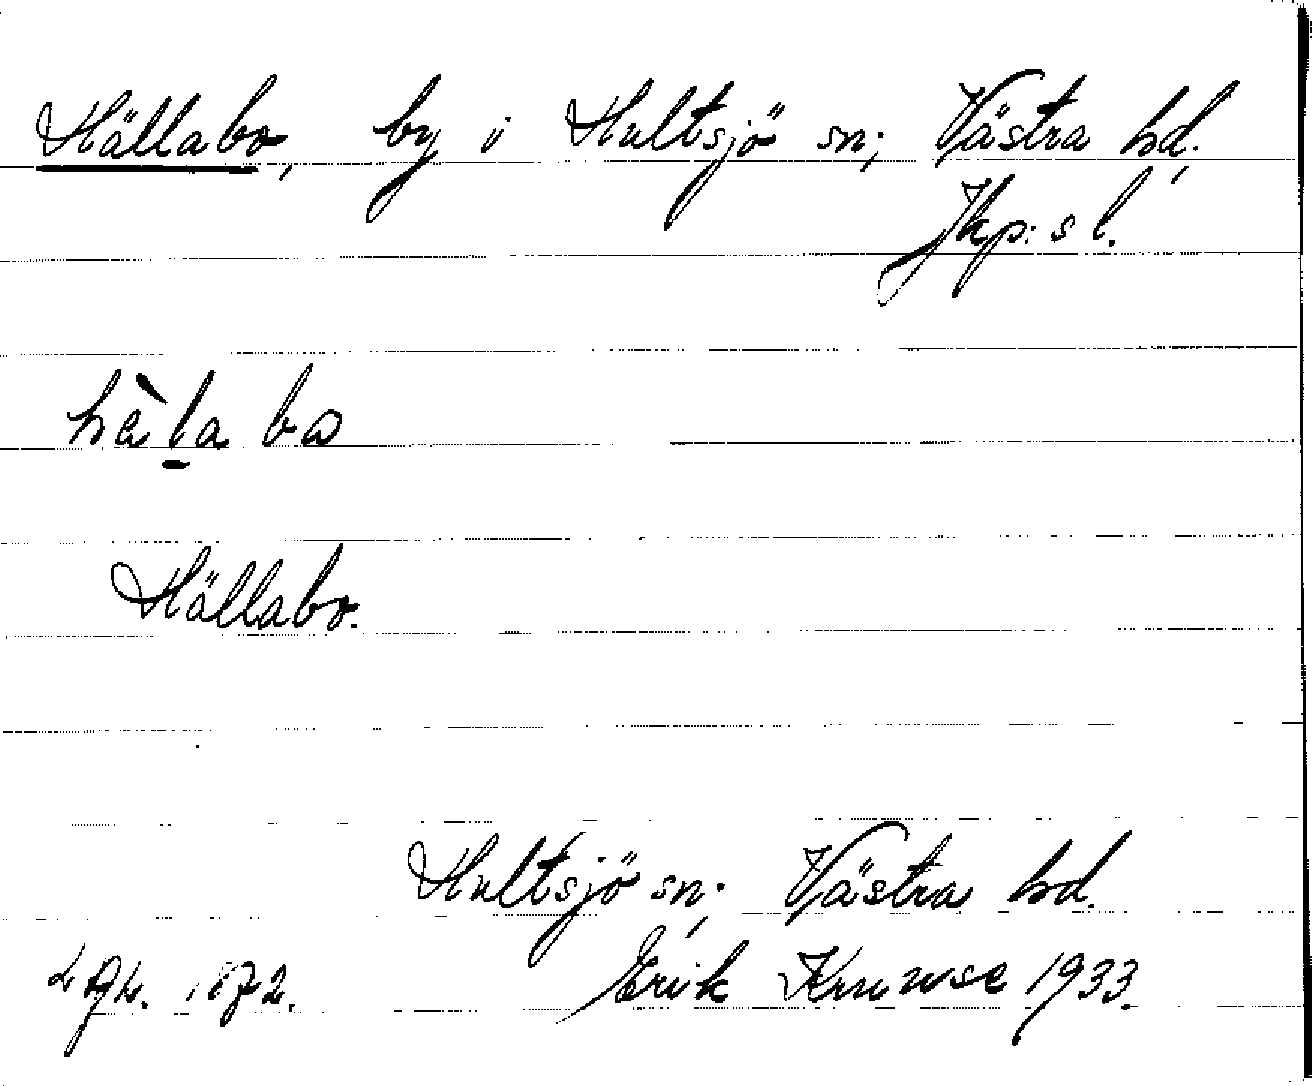 Hällabo, by i Hultsjö sn; Västra hd.
Jkp:s l.
hàla bo
Hällabo.
Hultsjö sn; Västra hd.
1872. Erik Kruuse 1933.